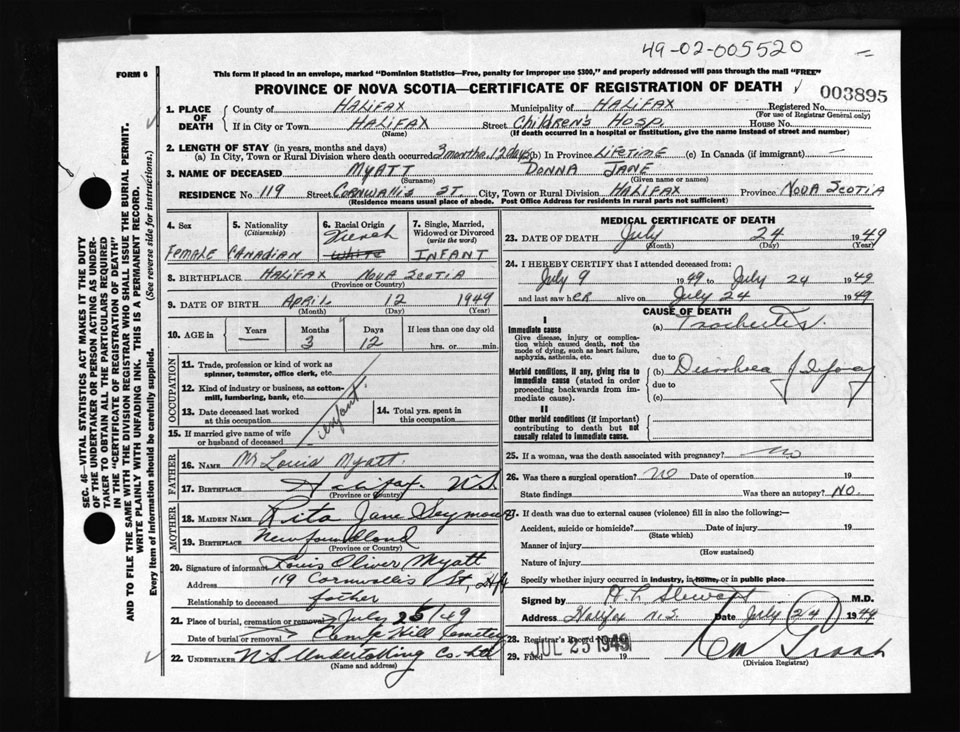 49-02-005520
FORM 6
This form if placed in an envelope, marked "Dominion Statistics—Free, penalty for improper use $300," and properly addressed will pass through the mail "FREE"
PROVINCE OF NOVA SCOTIA—CERTIFICATE OF REGISTRATION OF DEATH 003895
1. PLACE OF DEATH { County of HALIFAX Municipality of HALIFAX Registered No.
(For use of Registrar General only)
If in City or Town HALIFAX Street Children's Hosp. House No.
(Name) (If death occurred in a hospital or institution, give the name instead of street and number)
2. LENGTH OF STAY (in years, months and days)
(a) In City, Town or Rural Division where death occurred 3 months 12 days (b) In Province LIFETIME (c) In Canada (if immigrant) —
3. NAME OF DECEASED MYATT DONNA JANE
(Surname) (Given name or names)
RESIDENCE No. 119 Street CORNWALLIS ST City, Town or Rural Division HALIFAX Province NOVA SCOTIA
(Residence means usual place of abode. Post Office Address for residents in rural parts not sufficient)
4. Sex Female
5. Nationality (Citizenship) CANADIAN
6. Racial Origin French White
7. Single, Married, Widowed or Divorced (write the word) INFANT
8. BIRTHPLACE HALIFAX NOVA SCOTIA
(Province or Country)
9. DATE OF BIRTH APRIL 12 1949
(Month) (Day) (Year)
10. AGE in { Years — Months 3 Days 12 If less than one day old
hrs. or min.
OCCUPATION
11. Trade, profession or kind of work as spinner, teamster, office clerk, etc.
12. Kind of industry or business, as cotton-mill, lumbering, bank, etc.
infant
13. Date deceased last worked at this occupation
14. Total yrs. spent in this occupation
15. If married give name of wife or husband of deceased
FATHER
16. NAME Mr Louis Myatt.
17. BIRTHPLACE Halifax N.S.
(Province or Country)
MOTHER
18. MAIDEN NAME Rita Jane Seymour
19. BIRTHPLACE Newfoundland
(Province or Country)
20. Signature of informant Louis Oliver Myatt
Address 119 Cornwallis St, Hfx
Relationship to deceased father
21. Place of burial, cremation or removal July 25/49
Date of burial or removal Camp Hill Cemetery
22. UNDERTAKER N.S. Undertaking Co. Ltd
(Name and address)
MEDICAL CERTIFICATE OF DEATH
23. DATE OF DEATH July 24 1949
(Month) (Day) (Year)
24. I HEREBY CERTIFY that I attended deceased from:
July 9 1949 to July 24 1949
and last saw her alive on July 24 1949
CAUSE OF DEATH
I
Immediate cause
Give disease, injury or complication which caused death, not the mode of dying, such as heart failure, asphyxia, asthenia, etc.
(a)
due to
Morbid conditions, if any, giving rise to immediate cause (stated in order proceeding backwards from immediate cause).
(b) Diarrhoea of Infancy
due to
(c)
II
Other morbid conditions (if important) contributing to death but not causally related to immediate cause.
25. If a woman, was the death associated with pregnancy? No
26. Was there a surgical operation? No Date of operation 19
State findings Was there an autopsy? NO.
27. If death was due to external causes (violence) fill in also the following:—
Accident, suicide or homicide? Date of injury 19
(State which)
Manner of injury
(How sustained)
Nature of injury
Specify whether injury occurred in industry, in home, or in public place
Signed by H. L. Stewart M.D.
Address Halifax N.S. Date July 24 1949
28. Registrar's Record Number
29. Filed JUL 25 1949 19
(Division Registrar)
SEC. 46—VITAL STATISTICS ACT MAKES IT THE DUTY
OF THE UNDERTAKER OR PERSON ACTING AS UNDER-
TAKER TO OBTAIN ALL THE PARTICULARS REQUIRED
IN THE "CERTIFICATE OF REGISTRATION OF DEATH"
AND TO FILE THE SAME WITH THE DIVISION REGISTRAR WHO SHALL ISSUE THE BURIAL PERMIT.
WRITE PLAINLY WITH UNFADING INK. THIS IS A PERMANENT RECORD.
Every item of information should be carefully supplied. (See reverse side for instructions.)